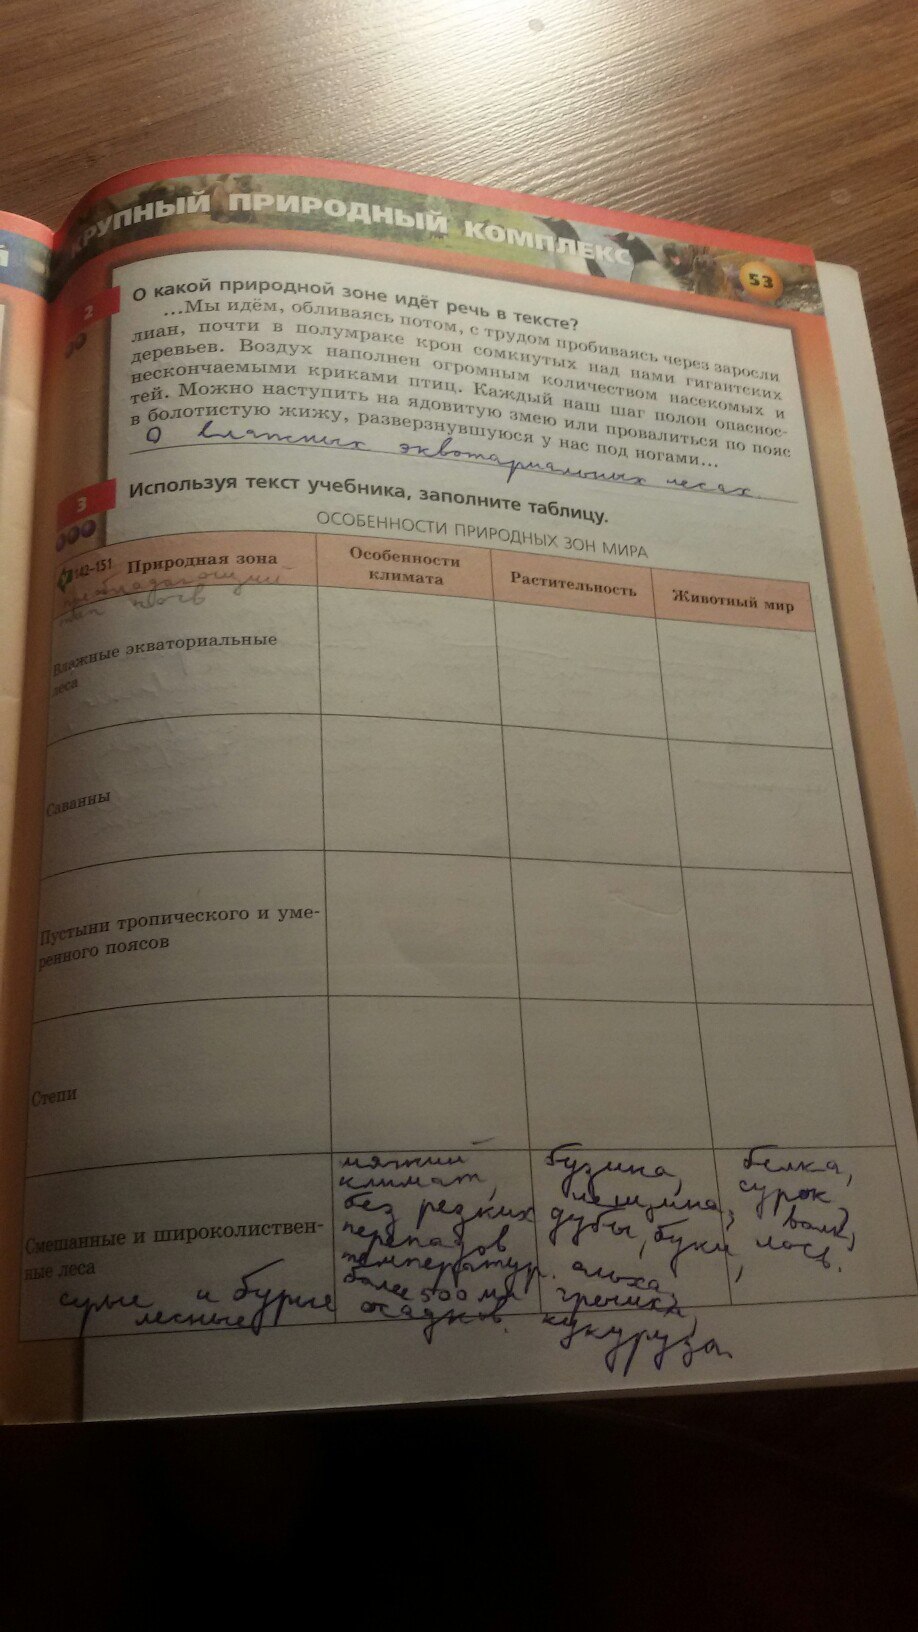 Й
КРУПНЫЙ ПРИРОДНЫЙ КОМПЛЕКС
53
2
О какой природной зоне идёт речь в тексте?
...Мы идём, обливаясь потом, с трудом пробиваясь через заросли
лиан, почти в полумраке крон сомкнутых над нами гигантских
деревьев. Воздух наполнен огромным количеством насекомых и
нескончаемыми криками птиц. Каждый наш шаг полон опаснос-
тей. Можно наступить на ядовитую змею или провалиться по пояс
в болотистую жижу, разверзнувшуюся у нас под ногами...
О влажных экваториальных лесах.
3
Используя текст учебника, заполните таблицу.
ОСОБЕННОСТИ ПРИРОДНЫХ ЗОН МИРА
142–151
Природная зона
Особенности
климата
Растительность
Животный мир
преобладающий
тип почв
Влажные экваториальные
леса
Саванны
Пустыни тропического и уме-
ренного поясов
Степи
Смешанные и широколиствен-
ные леса
серые и бурые
лесные
мягкий
климат,
без редких
перепадов
температур.
более 500 мм
осадков.
бузина,
лещина,
дубы, буки,
ольха,
гречиха,
кукуруза.
белка,
сурок,
волк,
лось.